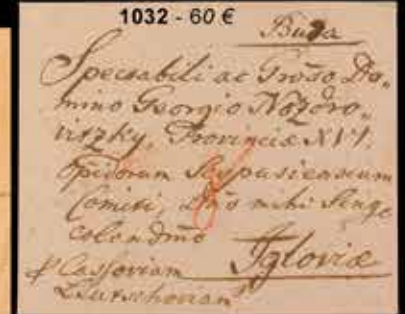 1032 - 60 €
Buda
Spectabili ac Groso Do„
mino Georgio
Provinciæ XVI.
Oppidorum Scepusiensium
Comiti, Dno mihi
colendmo
Igloviæ
p Cassoviam
Leutschoviam